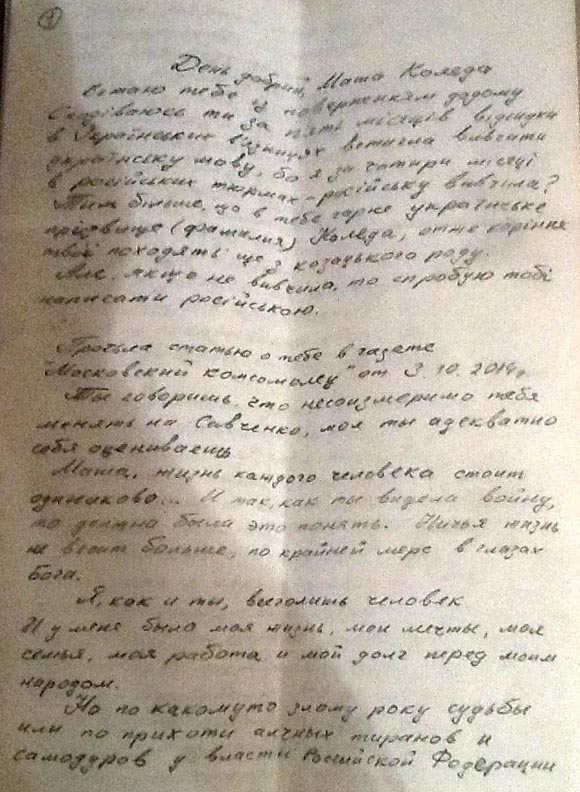 1
День добрий, Маша Коледа
Вітаю тебе з поверненням додому
Сподіваюсь ти за п'ять місяців відсидки
в Українських вязницях встигла вивчити
українську мову, бо я за чотири місяці
в російських тюрмах - російську вивчила?
Тим більше, що в тебе гарне українське
прізвище (фамилия) Коледа, отже коріння
твоє походять ще з козацького роду.
Але, якщо не вивчила, то спробую тобі
написати російською.
Прочла статью о тебе в газете
"Московский комсомолец" от 3.10.2014г.
Ты говоришь, что несоизмеримо тебя
менять на Савченко, мол ты адекватно
себя оцениваешь.
Маша, жизнь каждого человека стоит
одинаково... И так, как ты видела войну,
то должна была это понять. Ничья жизнь
не весит больше, по крайней мере в глазах
Бога.
Я, как и ты, человек.
И у меня была моя жизнь, мои мечты, моя
семья, моя работа и мой долг перед моим
народом.
Но по какомуто злому року судьбы
или по прихоти алчных тиранов и
самодуров у власти Российской Федерации